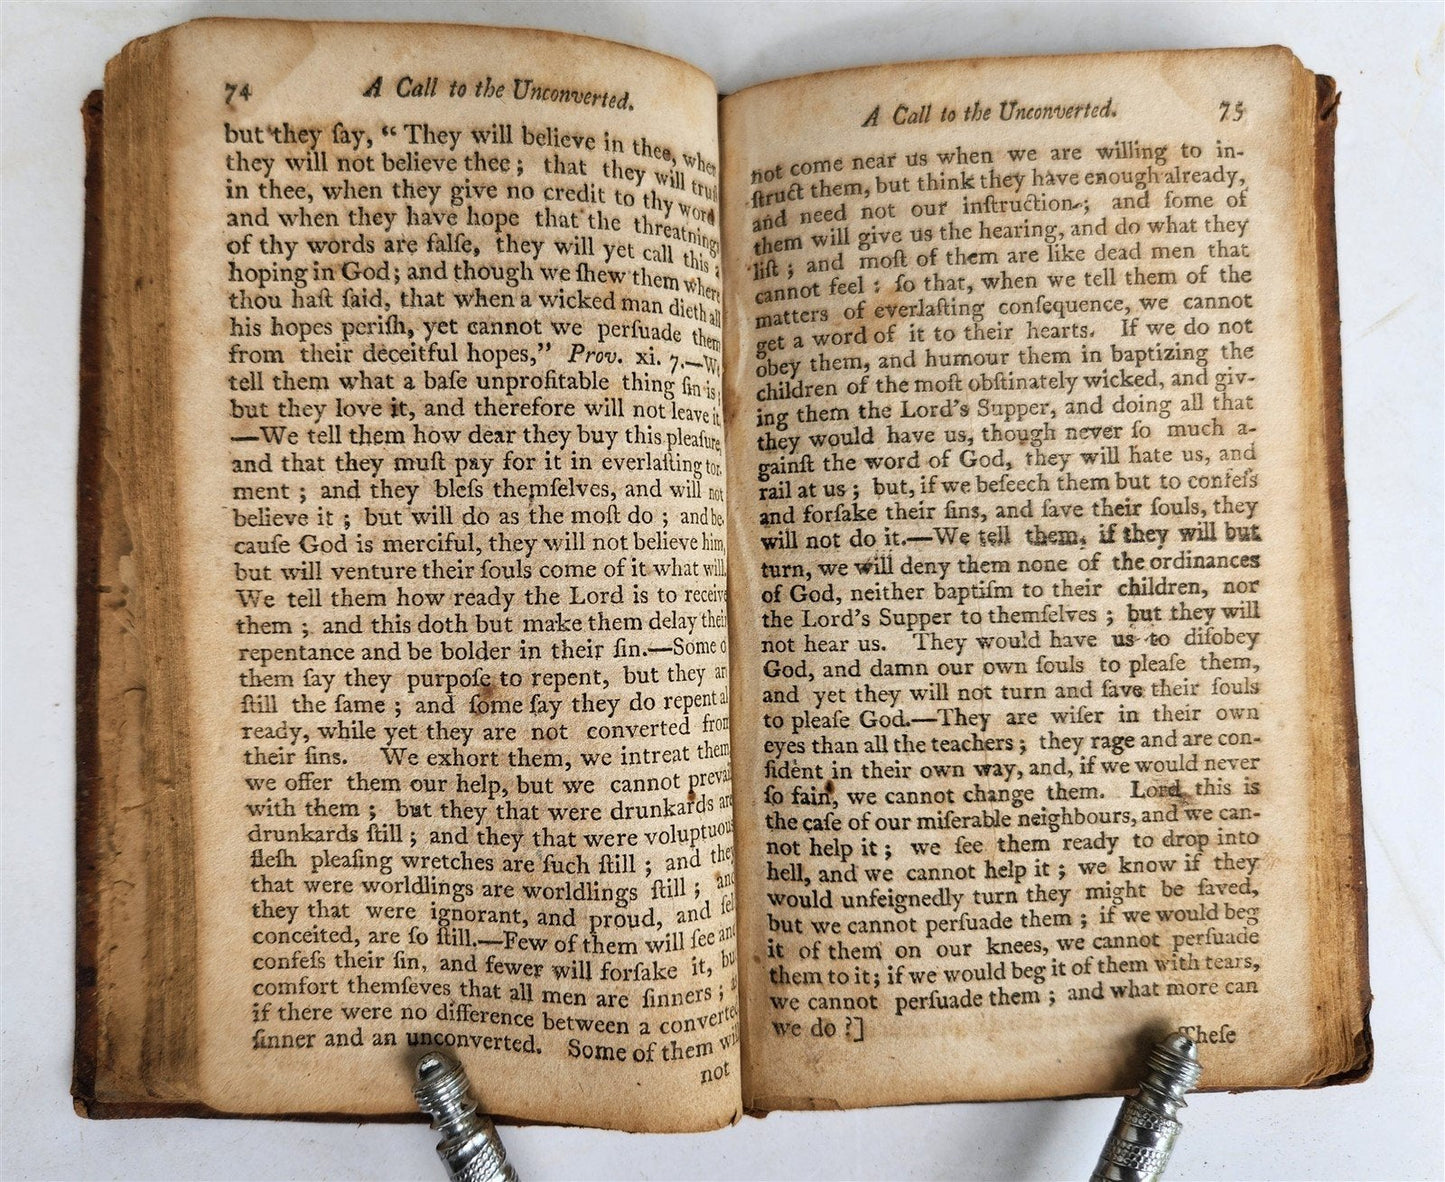 74
A Call to the Unconverted.
but they ſay, “ They will believe in thee, when
they will not believe thee ; that they will truſt
in thee, when they give no credit to thy word
and when they have hope that the threatnings
of thy words are falſe, they will yet call this a
hoping in God; and though we ſhew them where
thou haſt ſaid, that when a wicked man dieth all
his hopes periſh, yet cannot we perſuade them
from their deceitful hopes,” Prov. xi. 7.—We
tell them what a baſe unprofitable thing ſin is ;
but they love it, and therefore will not leave it.
—We tell them how dear they buy this pleaſure,
and that they muſt pay for it in everlaſting tor-
ment ; and they bleſs themſelves, and will not
believe it ; but will do as the moſt do ; and be-
cauſe God is merciful, they will not believe him,
but will venture their ſouls come of it what will.
We tell them how ready the Lord is to receive
them ; and this doth but make them delay their
repentance and be bolder in their ſin.—Some o
them ſay they purpoſe to repent, but they ar
ſtill the ſame ; and ſome ſay they do repent al
ready, while yet they are not converted from
their ſins. We exhort them, we intreat them
we offer them our help, but we cannot prevail
with them ; but they that were drunkards are
drunkards ſtill ; and they that were voluptuous
fleſh pleaſing wretches are ſuch ſtill ; and they
that were worldlings are worldlings ſtill ; and
they that were ignorant, and proud, and ſel
conceited, are ſo ſtill.—Few of them will ſee and
confeſs their ſin, and fewer will forſake it, bu
comfort themſeves that all men are ſinners ; a
if there were no difference between a converted
ſinner and an unconverted. Some of them will
not
A Call to the Unconverted.
75
not come near us when we are willing to in-
ſtruct them, but think they have enough already,
and need not our inſtruction ; and ſome of
them will give us the hearing, and do what they
liſt ; and moſt of them are like dead men that
cannot feel : ſo that, when we tell them of the
matters of everlaſting conſequence, we cannot
get a word of it to their hearts. If we do not
obey them, and humour them in baptizing the
children of the moſt obſtinately wicked, and giv-
ing them the Lord’s Supper, and doing all that
they would have us, though never ſo much a-
gainſt the word of God, they will hate us, and
rail at us ; but, if we beſeech them but to confeſs
and forſake their ſins, and ſave their ſouls, they
will not do it.—We tell them, if they will but
turn, we will deny them none of the ordinances
of God, neither baptiſm to their children, nor
the Lord’s Supper to themſelves ; but they will
not hear us. They would have us to diſobey
God, and damn our own ſouls to pleaſe them,
and yet they will not turn and ſave their ſouls
to pleaſe God.—They are wiſer in their own
eyes than all the teachers ; they rage and are con-
fident in their own way, and, if we would never
ſo fain, we cannot change them. Lord, this is
the caſe of our miſerable neighbours, and we can-
not help it ; we ſee them ready to drop into
hell, and we cannot help it ; we know if they
would unfeignedly turn they might be ſaved,
but we cannot perſuade them ; if we would beg
it of them on our knees, we cannot perſuade
them to it; if we would beg it of them with tears,
we cannot perſuade them ; and what more can
we do ?]
Theſe